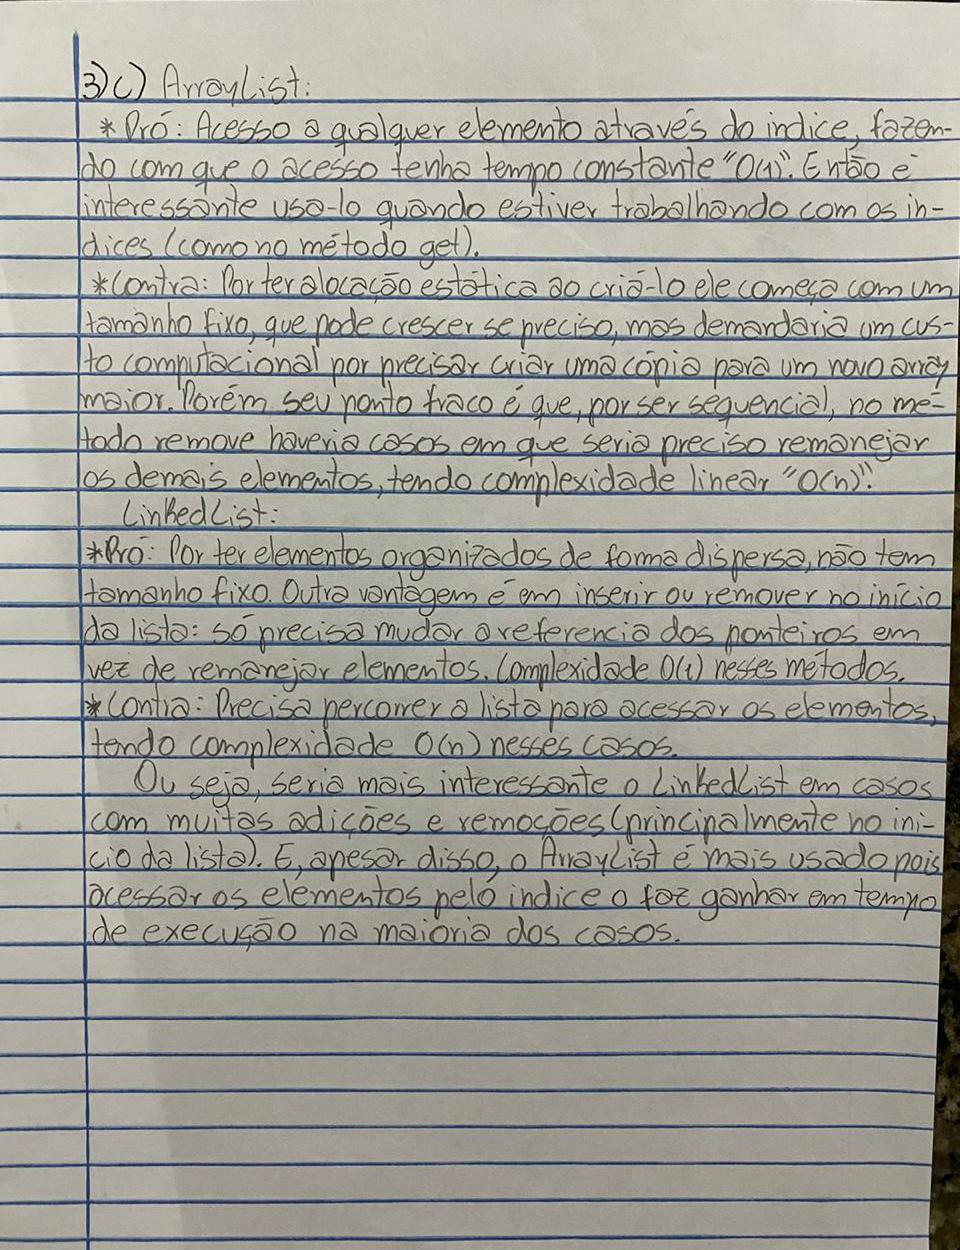 3)c) ArrayList:
*Pró: Acesso a qualquer elemento através do indice, fazen-
do com que o acesso tenha tempo constante "O(1)". Então é
interessante usa-lo quando estiver trabalhando com os in-
dices (como no método get).
*Contra: Por ter alocação estática ao criá-lo ele começa com um
tamanho fixo, que pode crescer se preciso, mas demandaria um cus-
to computacional por precisar criar uma cópia para um novo array
maior. Porém seu ponto fraco é que, por ser sequencial, no mé-
todo remove haveria casos em que seria preciso remanejar
os demais elementos, tendo complexidade linear "O(n)".
LinkedList:
*Pró: Por ter elementos organizados de forma dispersa, não tem
tamanho fixo. Outra vantagem é em inserir ou remover no início
da lista: só precisa mudar a referencia dos ponteiros em
vez de remanejar elementos. Complexidade O(1) nesses métodos.
*Contra: Precisa percorrer a lista para acessar os elementos,
tendo complexidade O(n) nesses casos.
Ou seja, seria mais interessante o LinkedList em casos
com muitas adições e remoções (principalmente no iní-
cio da lista). E, apesar disso, o ArrayList é mais usado pois
acessar os elementos pelo indice o faz ganhar em tempo
de execução na maioria dos casos.